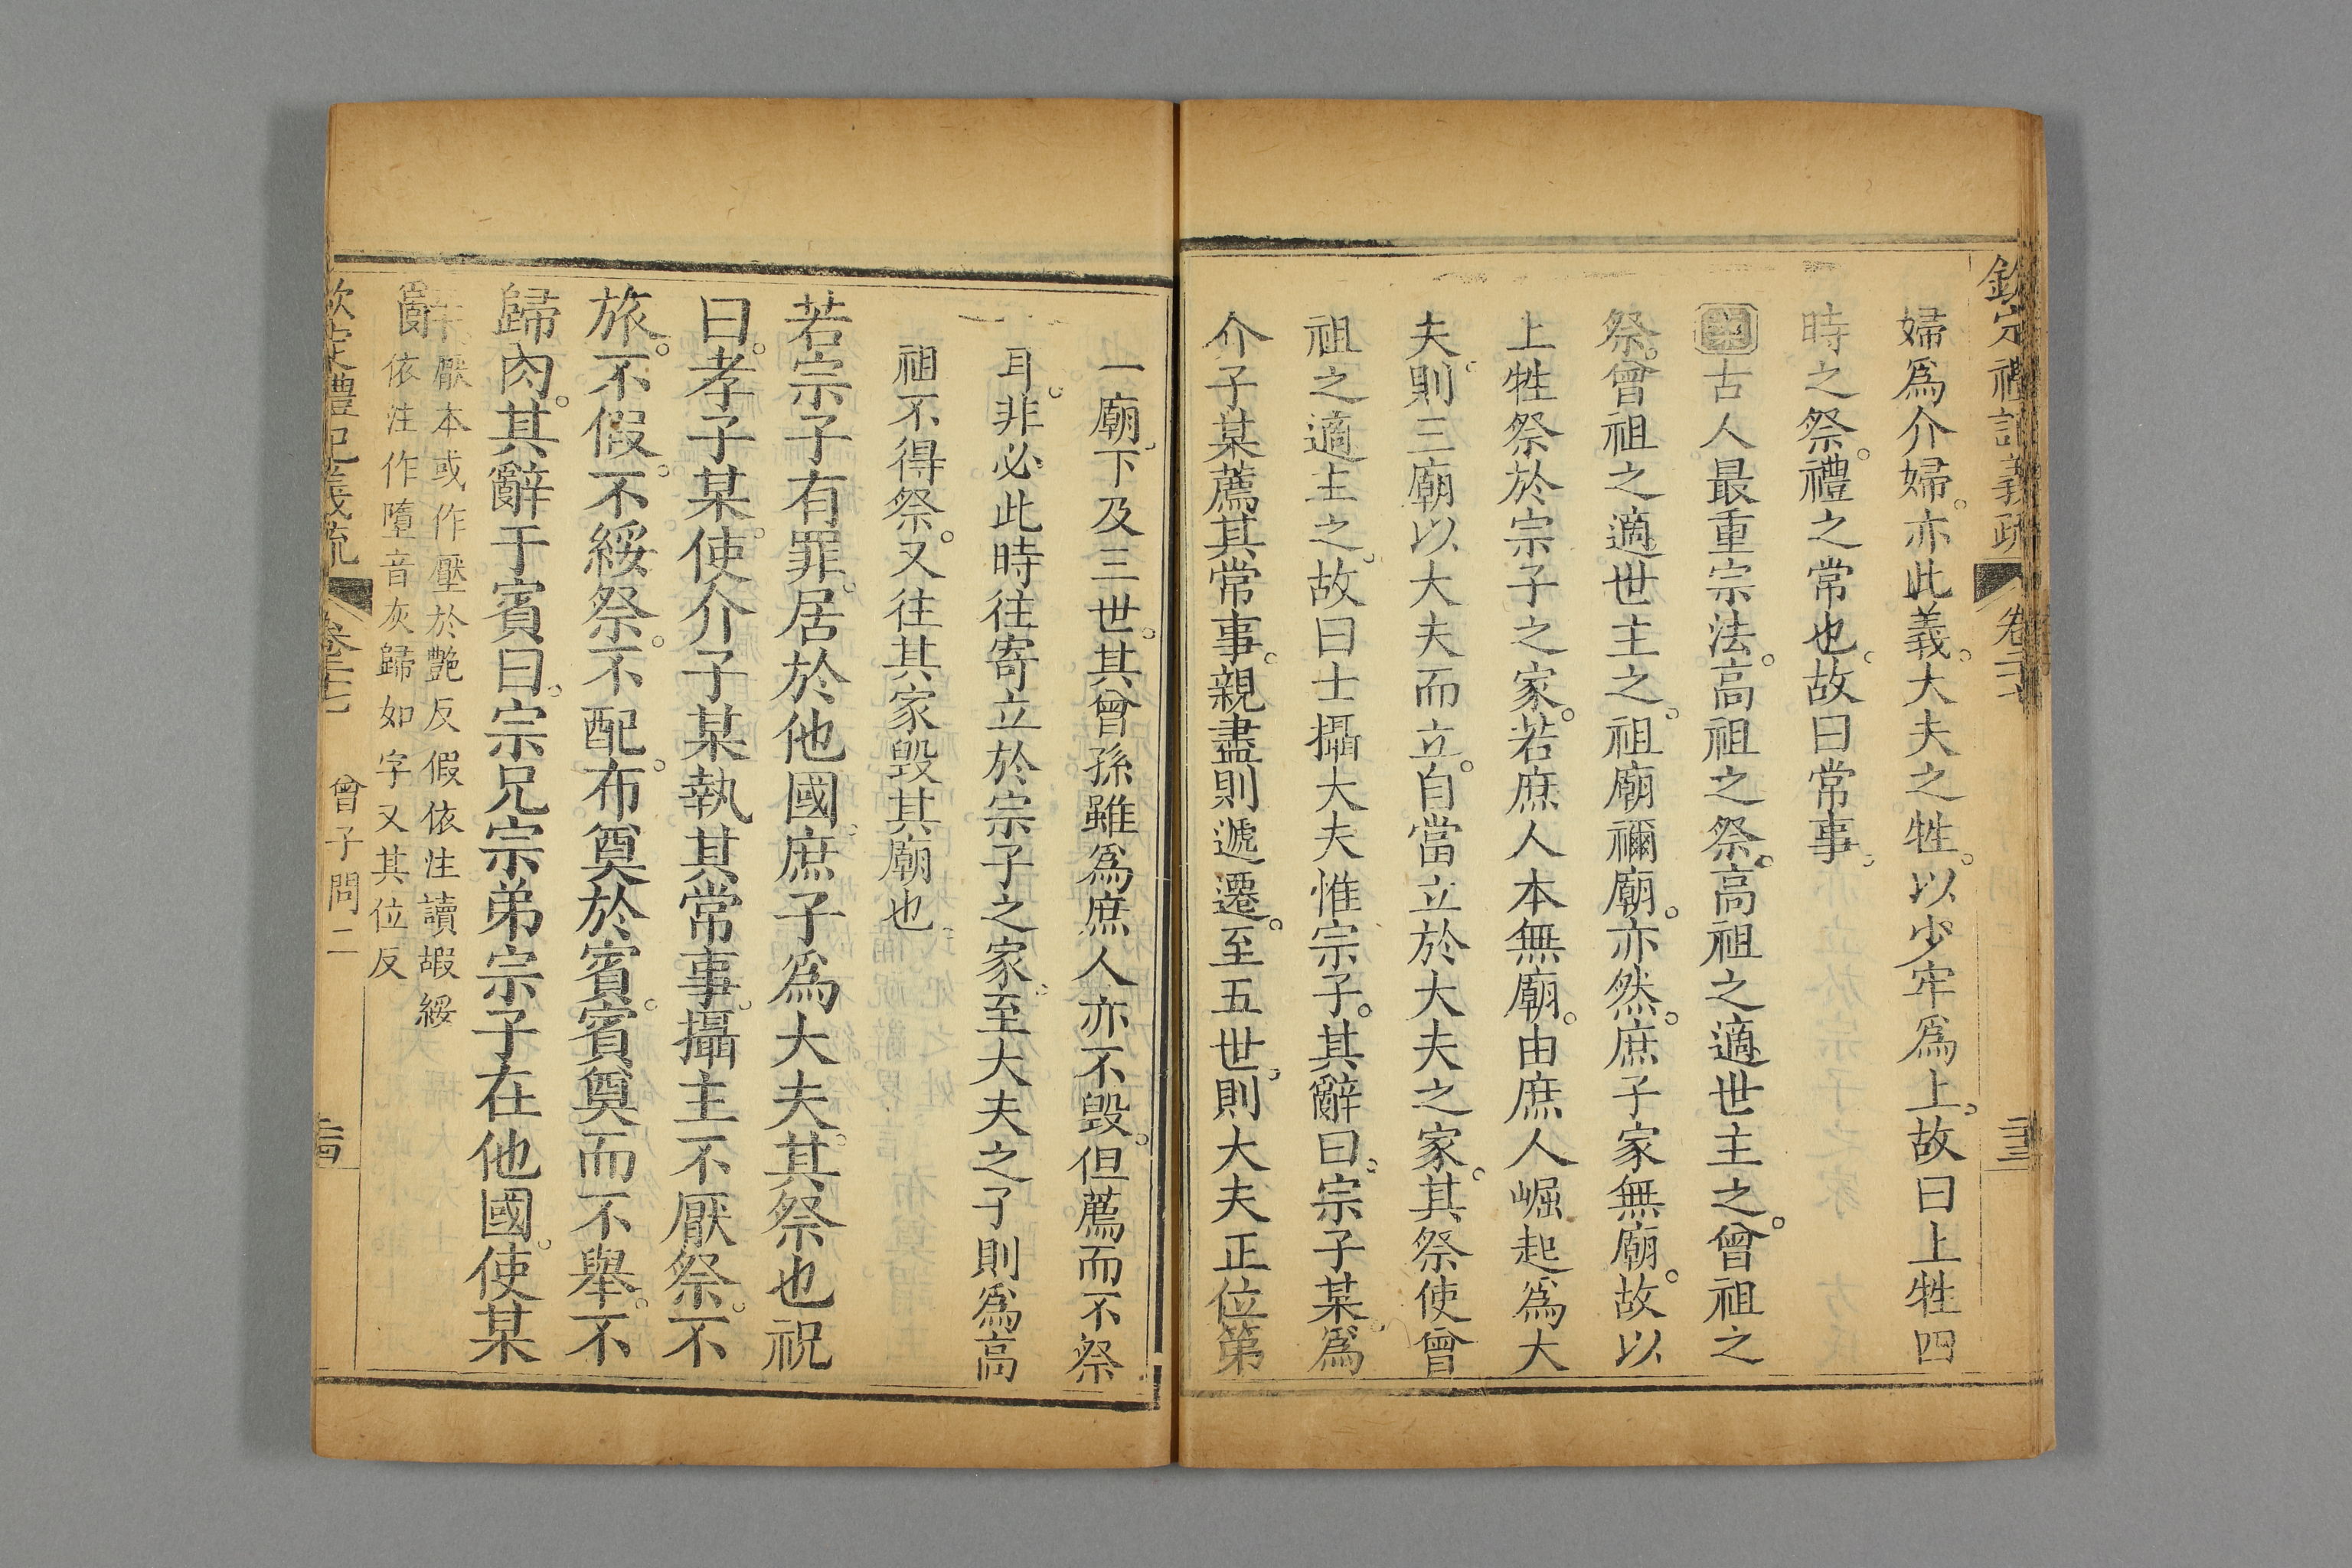 欽定禮記義疏 卷二十七 三十三
婦爲介婦。亦此義。大夫之牲。以少牢爲上。故曰上牲四
時之祭。禮之常也。故曰常事。
案古人最重宗法。高祖之祭。高祖之適世主之。曾祖之
祭。曾祖之適世主之。祖廟禰廟。亦然。庶子家無廟。故以
上牲祭於宗子之家。若庶人本無廟。由庶人崛起爲大
夫。則三廟以大夫而立。自當立於大夫之家。其祭使曾
祖之適主之。故曰士攝大夫惟宗子。其辭曰。宗子某。爲
介子某薦其常事。親盡則遞遷。至五世。則大夫正位第
一廟。下及三世。其曾孫雖爲庶人亦不毁。但薦而不祭
耳。非必此時往寄立於宗子之家。至大夫之子則爲高
祖不得祭。又往其家毁其廟也。
若宗子有罪。居於他國。庶子爲大夫。其祭也祝
曰。孝子某。使介子某執其常事。攝主不厭祭。不
旅。不假。不綏祭。不配。布奠於賓。賓奠而不舉。不
歸肉。其辭于賓曰。宗兄宗弟宗子在他國。使某
辭
厭本或作壓於艶反假依注讀嘏綏
依注作墮音灰歸如字又其位反
欽定禮記義疏 卷二十七 曾子問二 三十四